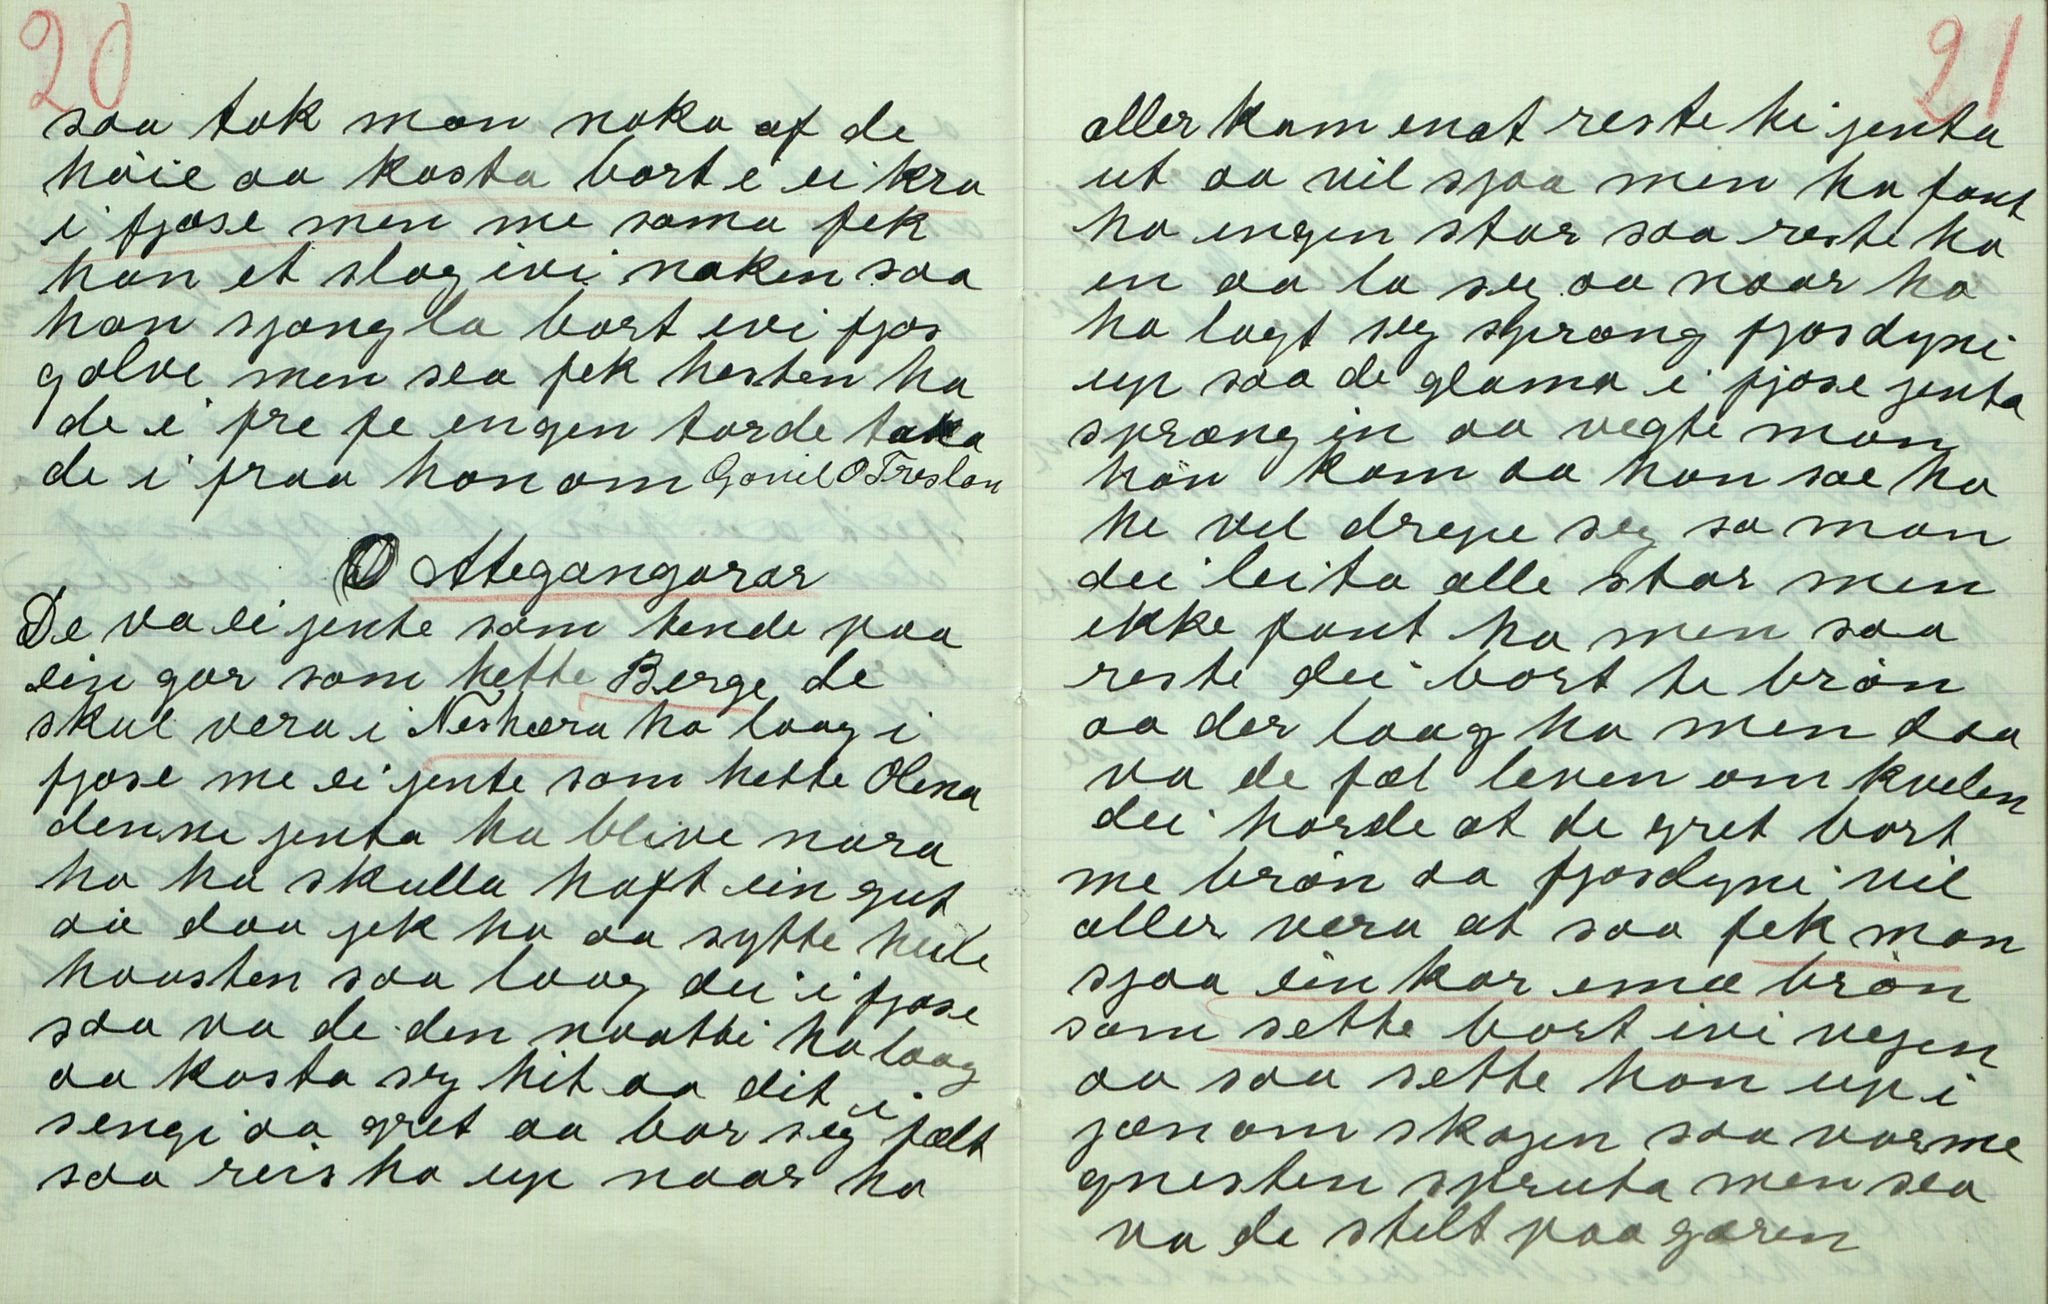 20
saa tok man noko af de
höie aa kasta bort i ei kra
i fjose men me sama fek
han et slag ivi naken saa
han sjangla bort ivi fjos
golve men sea fek hesten ha
de i fre fe engen torde taka
de i fraa honom Gonil O Treslan
Ategangarar
De va ei jente som tende paa
ein gar som hette Berge de
skul vera i Neshæra ho laag i
fjose me ei jente som hette Olena
denne jenta ha blive nara
ho ha skulla haft ein gut
aa daa jek ho aa sytte heile
haasten saa laag dei i fjose
saa va de den naatti ho laag
aa kasta seg hit aa dit i
sengi aa gret aa bar seg fælt
saa reis ho up naar ho
21
aller kom enat reste hi jenta
ut aa vil sjaa men ho fant
ho engen star saa reste ho
en aa la seg aa naar ho
ha lagt seg sprang fjosdyni
up saa de glama i fjose jenta
sprang in aa vegte man
han kom aa han sae ho
he vel drepe seg sa man
dei leita alle star men
ikke fant ho men saa
reste dei bort te brön
aa der laag ho men daa
va de fæl leven om kvelen
dei horde at de gret bort
me brön aa fjosdyni vil
aller vera at saa fek man
sjaa ein kar imæ brön
som sette bort ivi vegen
aa saa sette han up i
jænom skogen saa varme
gnesten spruta men sea
va de stelt paa garen